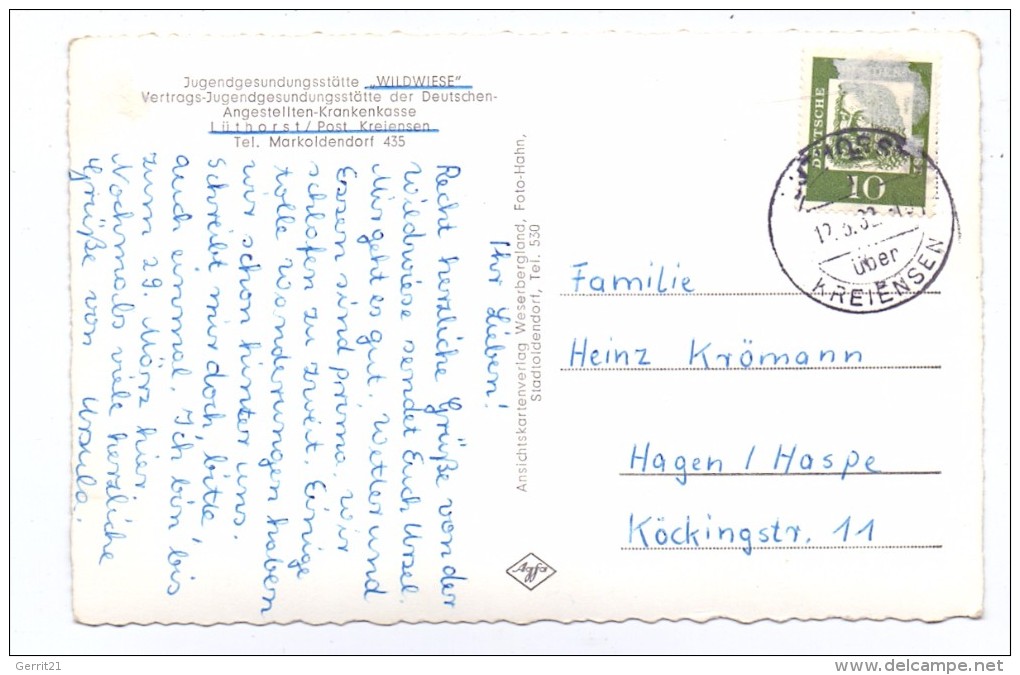 Jugendgesundungsstätte „WILDWIESE"
Vertrags-Jugendgesundungsstätte der Deutschen-
Angestellten-Krankenkasse
Lüthorst/Post Kreiensen
Tel. Markoldendorf 435
Ihr Lieben!
Recht herzliche Grüße von der
Wildwiese sendet Euch Ursel.
Mir geht es gut. Wetter und
Essen sind prima. Wir
schlafen zu zweit. Einige
tolle Wanderungen haben
wir schon hinter uns.
Schreibt mir doch bitte
auch einmal. Ich bin bis
zum 29. März hier.
Nochmals viele herzliche
Grüße von Ursula.
Ansichtskartenverlag Weserbergland, Foto-Hahn,
Stadtoldendorf, Tel. 530
Agfa
DEUTSCHE
10
über
KREIENSEN
Familie
Heinz Krömann
Hagen / Haspe
Köckingstr. 11
Gerrit21
delcampe.net